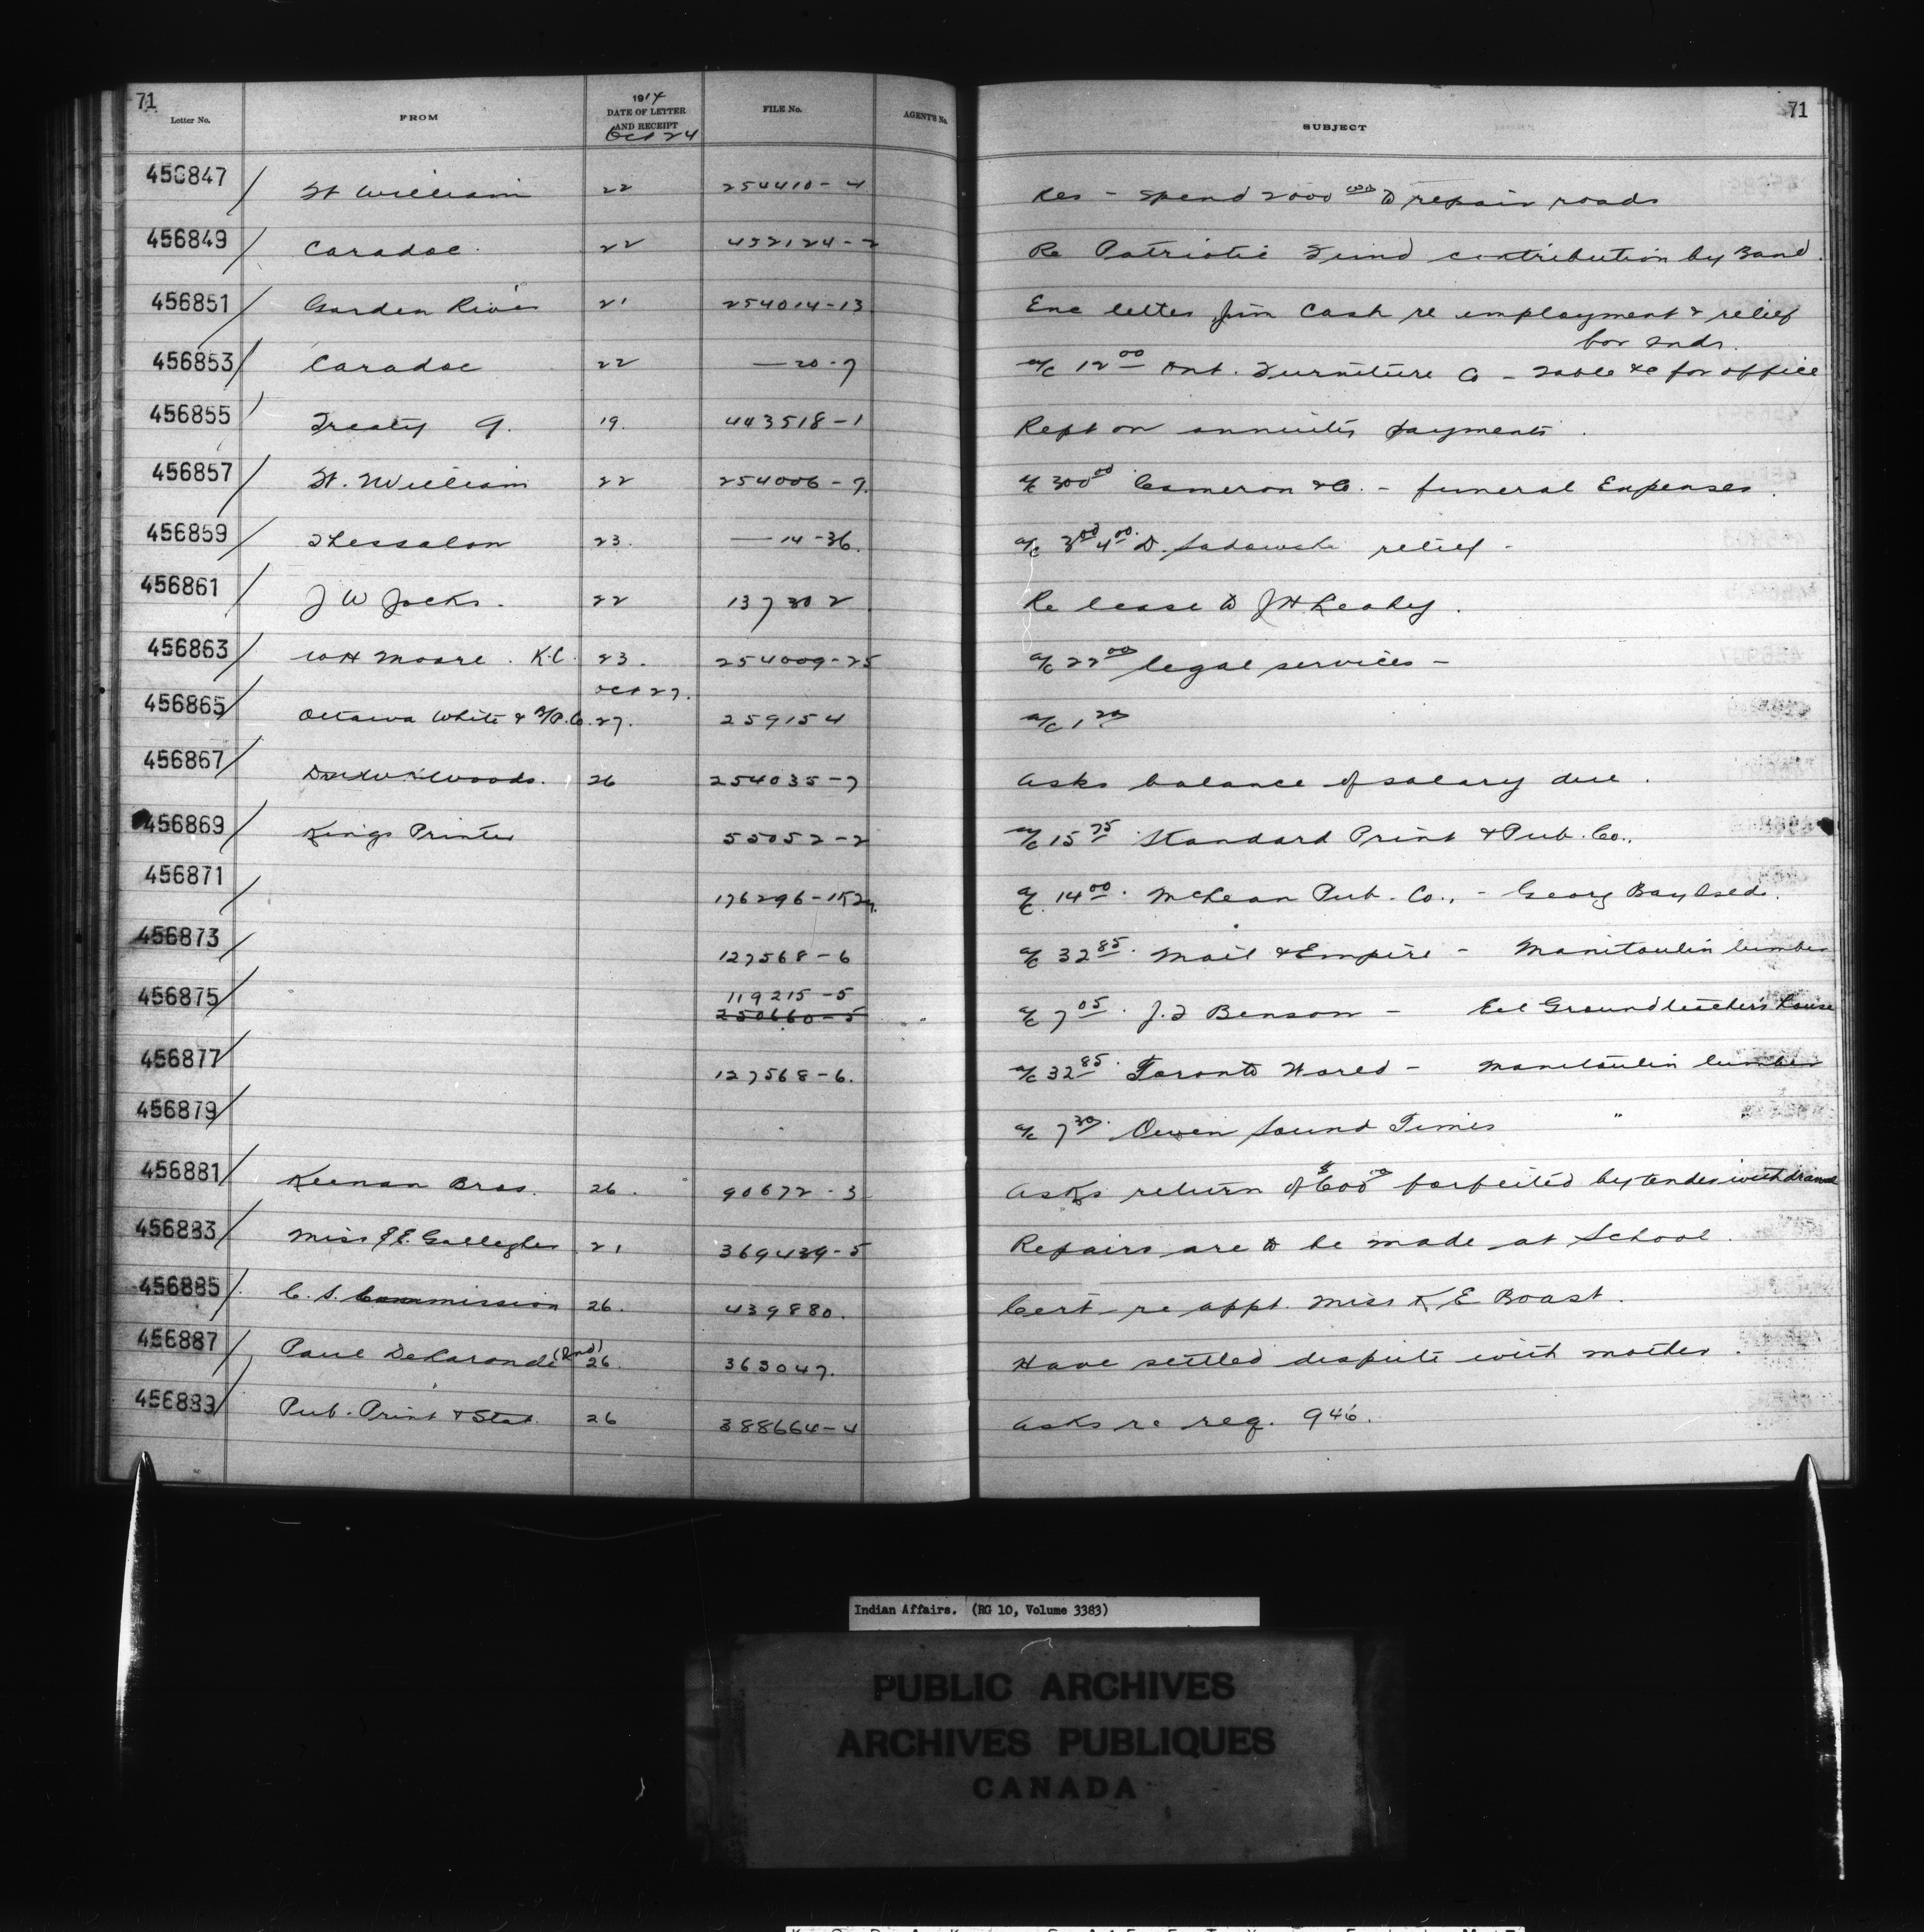 71
1914
Letter No. FROM DATE OF LETTER AND RECEIPT FILE No. AGENT'S No. SUBJECT 71
Oct 24
456847 / Ft William 22 254410-4 Res - Spend 2000 to repair roads
456849 / Caradoc 22 432124-2 Re Patriotic Fund contribution by Band.
456851 / Garden River 21 254014-13 Enc letter Jim Cash re employment & relief
for Inds.
456853 / Caradoc 22 —20-7 a/c 12 00 Ont. Furniture Co - Table &c for office
456855 / Treaty 9. 19. 443518-1 Rept on annuity payments.
456857 / Ft. William 22 254006-7. a/c 300 00 Cameron & Co. - funeral Expenses.
456859 / Thessalon 23. —14-36. a/c 3 00 4 00. D. Sadowski relief -
456861 / J W Jocks. 22 137302 Re lease to J H Leahy.
456863 / W H Moore. K.C. 23. 254009-25 a/c 22 00 legal services -
Oct 27.
456865 / Ottawa White & Co. 27. 259154 a/c 1 20
456867 / Woods. 26 254035-7 asks balance of salary due.
456869 / Kings Printer 55052-2 a/c 15 75 Standard Print & Pub. Co.,
456871 / 176296 a/c 14 00. McLean Pub. Co., - Georg Bay Isds.
456873 / 127568-6 a/c 32 85. Mail & Empire - Manitoulin lumber
119215-5
456875 / 250660-5 a/c 7 05. J. T Benson - Eel Ground teacher's house
456877 / 127568-6. a/c 32 85. Toronto World - Manitoulin lumber
456879 / a/c 7 30. Owen Sound Times "
456881 / Keenan Bros. 26. 90672-3 asks return of $600 00 forfeited by tender withdrawal
456883 / Miss Gallagher 21 369439-5 Repairs are to be made at School.
456885 / C. S. Commission 26. 439880. Cert re appt. Miss K E Boast.
456887 / Paul DeLaronde (Ind) 26. 363047. Have settled dispute with mother.
456889 / Pub. Print & Stat. 26 388664-4 asks re req. 946.
Indian Affairs. (RG 10, Volume 3383)
PUBLIC ARCHIVES
ARCHIVES PUBLIQUES
CANADA